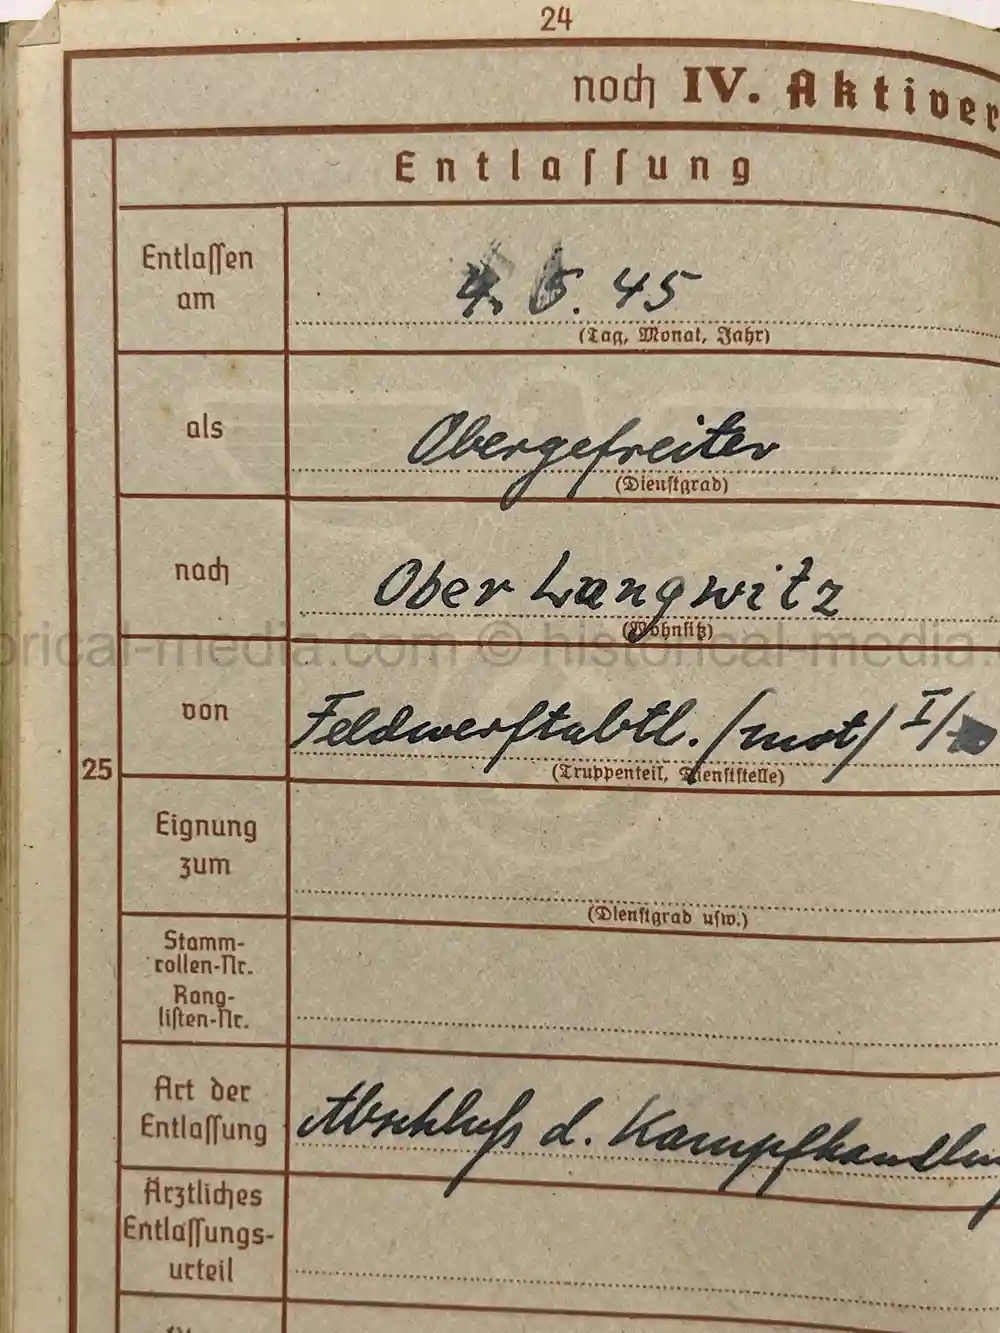 24
noch IV. Aktiver
Entlassung
Entlassen
am
5. 45
(Tag, Monat, Jahr)
als
Obergefreiter
(Dienstgrad)
nach
Ober Langwitz
(Wohnsitz)
orical-media.com © historical-media.
von
Feldwerftabtl. /mot/ I/
25
(Truppenteil, Dienststelle)
Eignung
zum
(Dienstgrad usw.)
Stamm-
rollen-Nr.
Rang-
listen-Nr.
Art der
Entlassung
Abschluß d. Kampfhandlung
Ärztliches
Entlassungs-
urteil